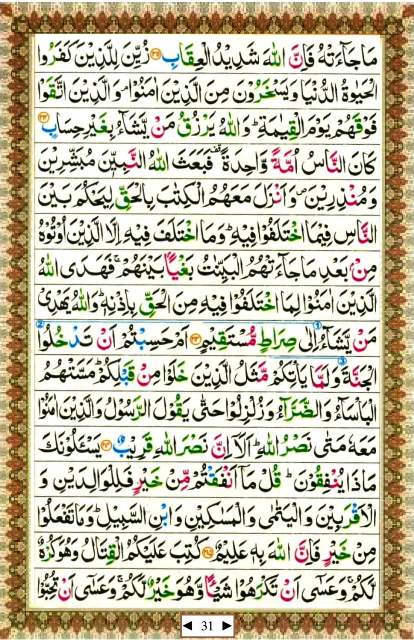 مَا جَآءَتْهُ فَاِنَّ اللّٰهَ شَدِيْدُ الْعِقَابِ ۝۲۱۱ زُيِّنَ لِلَّذِيْنَ كَفَرُوا
الْحَيٰوةُ الدُّنْيَا وَيَسْخَرُوْنَ مِنَ الَّذِيْنَ اٰمَنُوْا ۘ وَالَّذِيْنَ اتَّقَوْا
فَوْقَهُمْ يَوْمَ الْقِيٰمَةِ ؕ وَاللّٰهُ يَرْزُقُ مَنْ يَّشَآءُ بِغَيْرِ حِسَابٍ ۝۲۱۲
كَانَ النَّاسُ اُمَّةً وَّاحِدَةً ۫ فَبَعَثَ اللّٰهُ النَّبِيّٖنَ مُبَشِّرِيْنَ
وَمُنْذِرِيْنَ ۪ وَاَنْزَلَ مَعَهُمُ الْكِتٰبَ بِالْحَقِّ لِيَحْكُمَ بَيْنَ
النَّاسِ فِيْمَا اخْتَلَفُوْا فِيْهِ ؕ وَمَا اخْتَلَفَ فِيْهِ اِلَّا الَّذِيْنَ اُوْتُوْهُ
مِنْۢ بَعْدِ مَا جَآءَتْهُمُ الْبَيِّنٰتُ بَغْيًۢا بَيْنَهُمْ ۚ فَهَدَى اللّٰهُ
الَّذِيْنَ اٰمَنُوْا لِمَا اخْتَلَفُوْا فِيْهِ مِنَ الْحَقِّ بِاِذْنِهٖ ؕ وَاللّٰهُ يَهْدِيْ
مَنْ يَّشَآءُ اِلٰى صِرَاطٍ مُّسْتَقِيْمٍ ۝۲۱۳ اَمْ حَسِبْتُمْ اَنْ تَدْخُلُوا
الْجَنَّةَ وَلَمَّا يَاْتِكُمْ مَّثَلُ الَّذِيْنَ خَلَوْا مِنْ قَبْلِكُمْ ؕ مَسَّتْهُمُ
الْبَاْسَآءُ وَالضَّرَّآءُ وَزُلْزِلُوْا حَتّٰى يَقُوْلَ الرَّسُوْلُ وَالَّذِيْنَ اٰمَنُوْا
مَعَهٗ مَتٰى نَصْرُ اللّٰهِ ؕ اَلَاۤ اِنَّ نَصْرَ اللّٰهِ قَرِيْبٌ ۝۲۱۴ يَسْـَٔلُوْنَكَ
مَاذَا يُنْفِقُوْنَ ؕ قُلْ مَاۤ اَنْفَقْتُمْ مِّنْ خَيْرٍ فَلِلْوَالِدَيْنِ وَ
الْاَقْرَبِيْنَ وَالْيَتٰمٰى وَالْمَسٰكِيْنِ وَابْنِ السَّبِيْلِ ؕ وَمَا تَفْعَلُوْا
مِنْ خَيْرٍ فَاِنَّ اللّٰهَ بِهٖ عَلِيْمٌ ۝۲۱۵ كُتِبَ عَلَيْكُمُ الْقِتَالُ وَهُوَ كُرْهٌ
لَّكُمْ ۚ وَعَسٰۤى اَنْ تَكْرَهُوْا شَيْـًٔا وَّهُوَ خَيْرٌ لَّكُمْ ۚ وَعَسٰۤى اَنْ تُحِبُّوْا
31